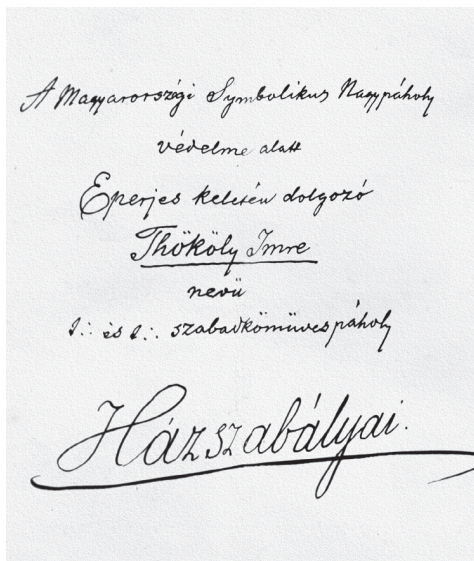 A Magyarországi Symbolikus Nagypáholy
védelme alatt
Eperjes keletén dolgozó
Thököly Imre
nevü
t∴ és t∴ szabadkömüvespáholy
Házszabályai.